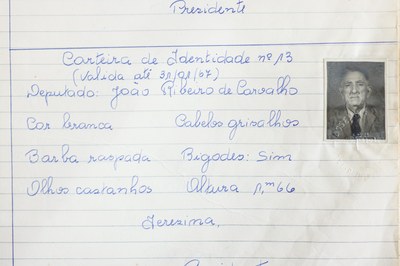 Presidente
Carteira de Identidade nº 13
(Valida até 31/01/67)
Deputado: João Ribeiro de Carvalho
Cor branca Cabelos grisalhos
Barba raspada Bigodes: Sim
Olhos castanhos Altura 1,m66
Terezina,